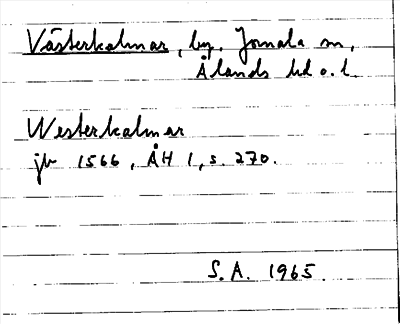 Västerkalmar, by, Jomala sn,
Ålands hd o. l.
Westerkalmar
jb 1566, ÅH 1, s. 270.
S. A. 1965.